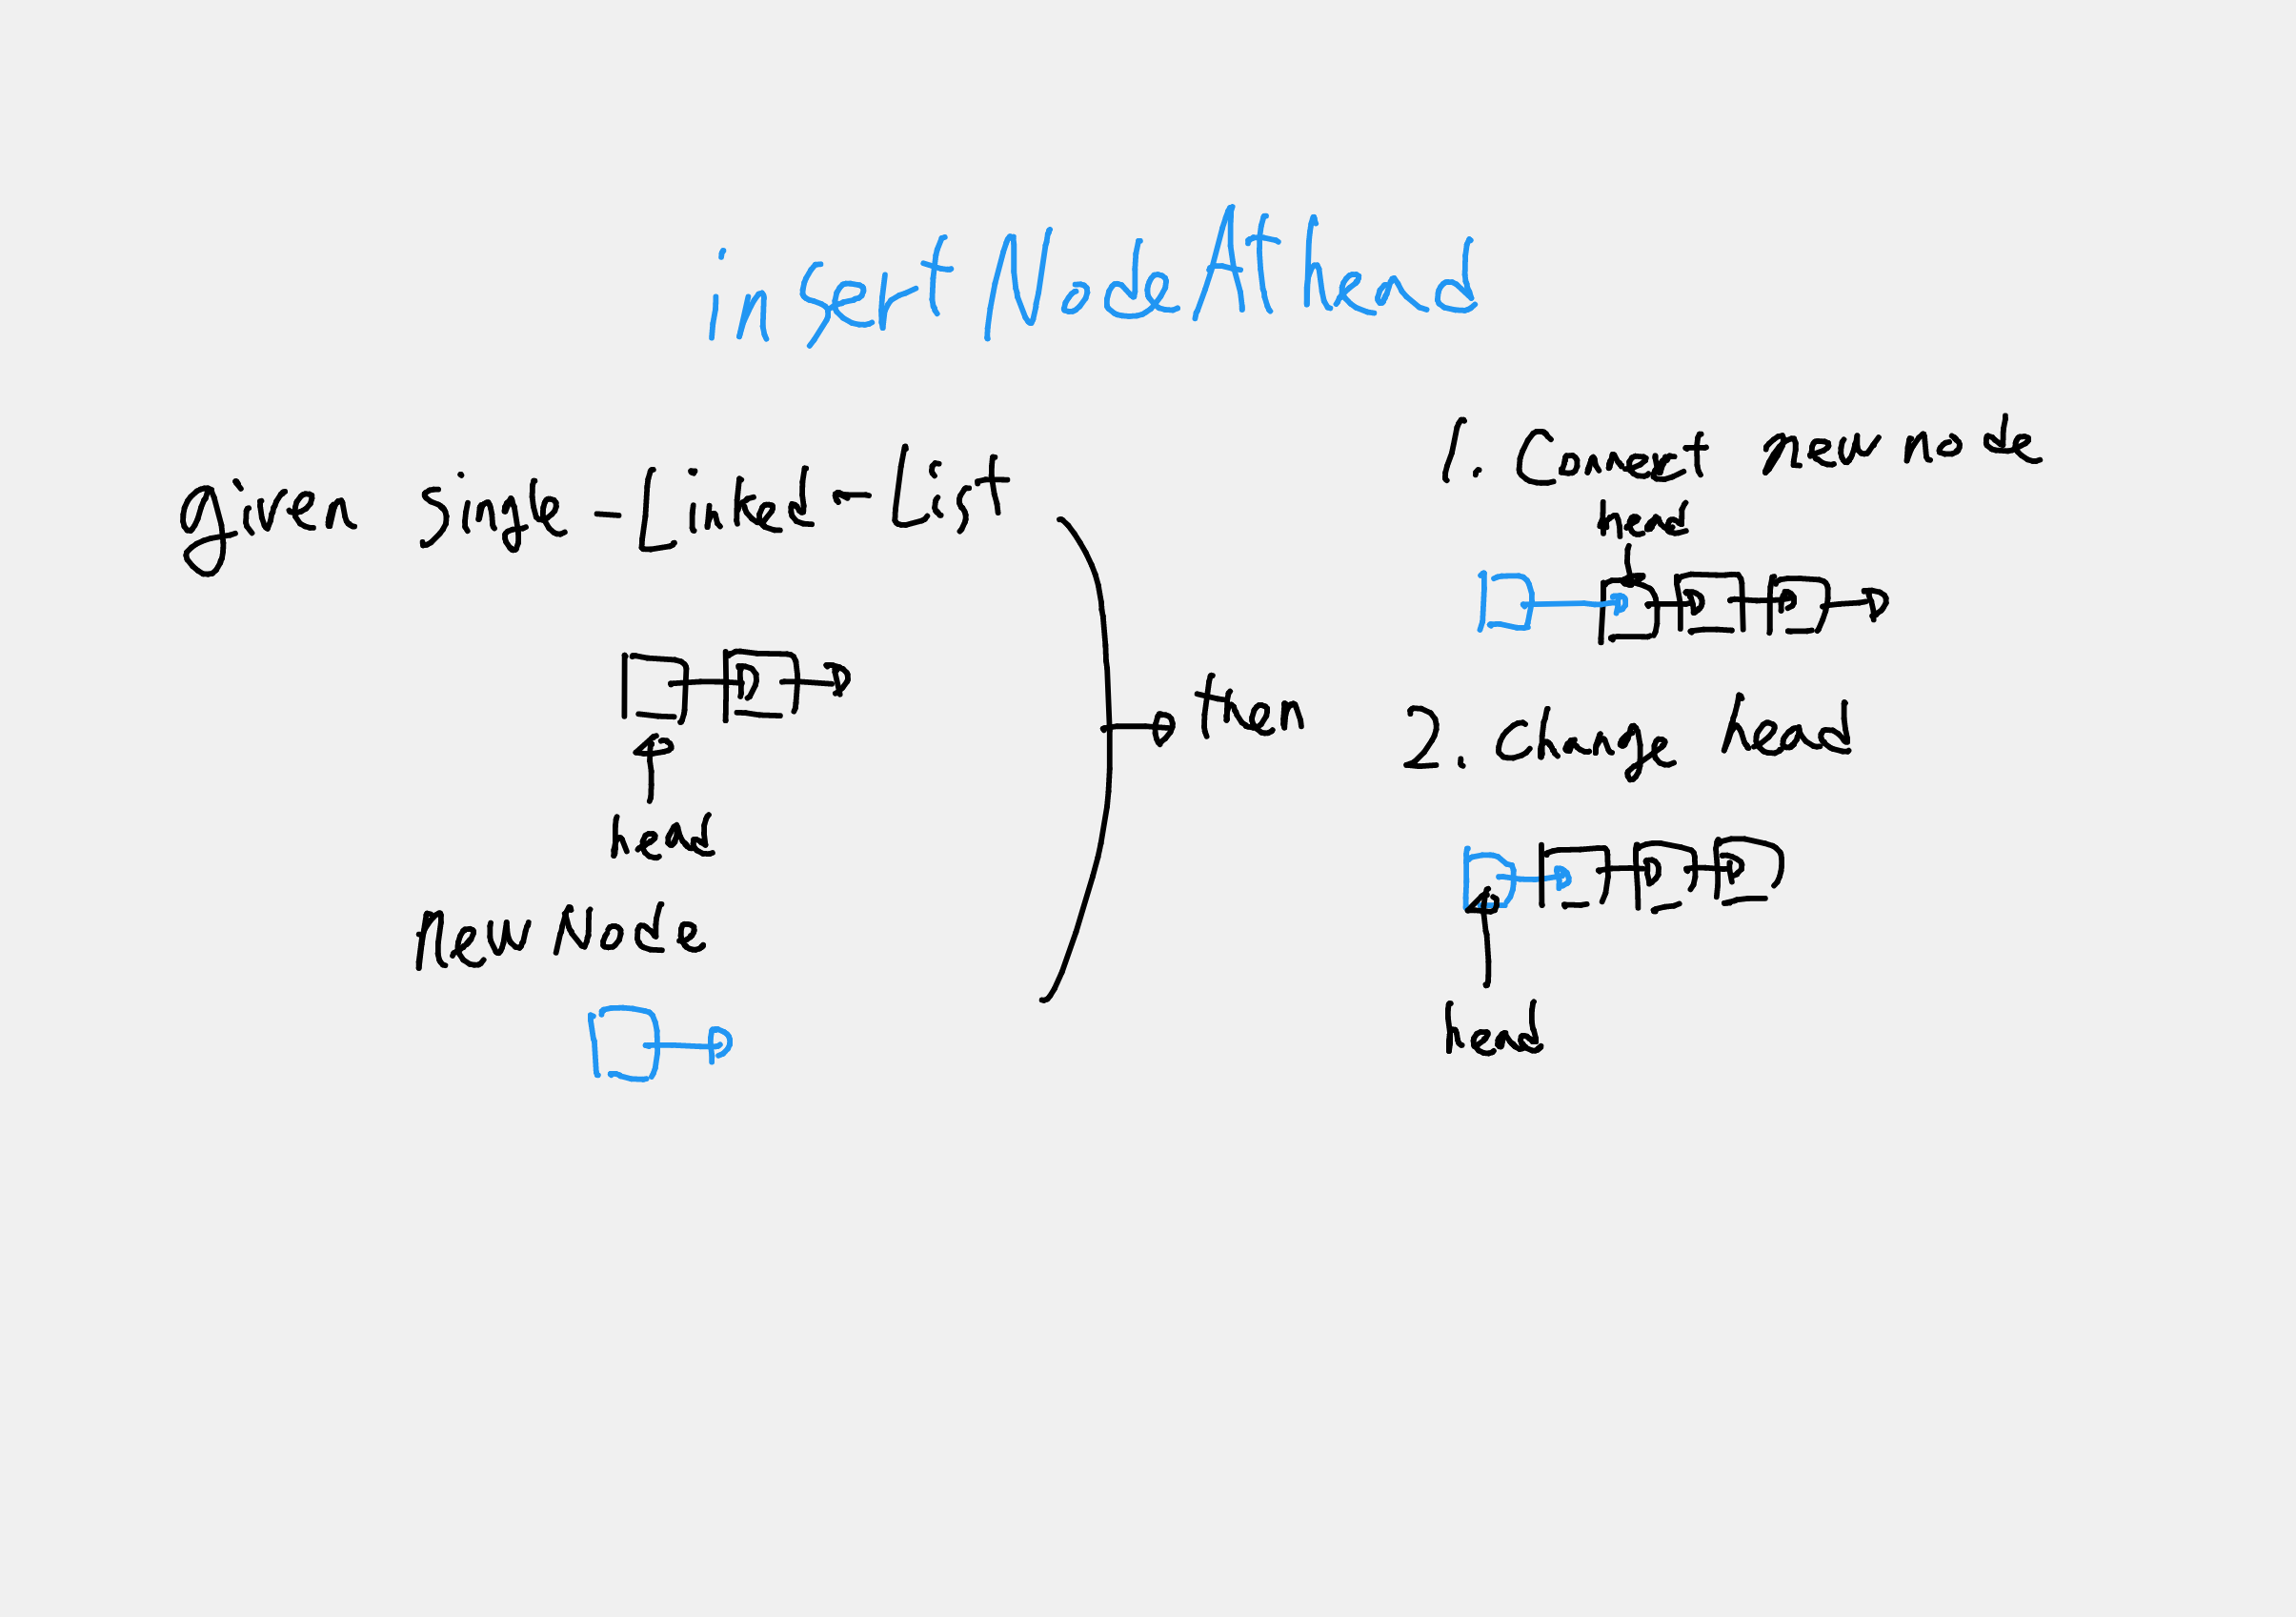 insertNodeAthead
given single-Linked-List
head
New Node
then
1. Connect new node
head
2. change head
head